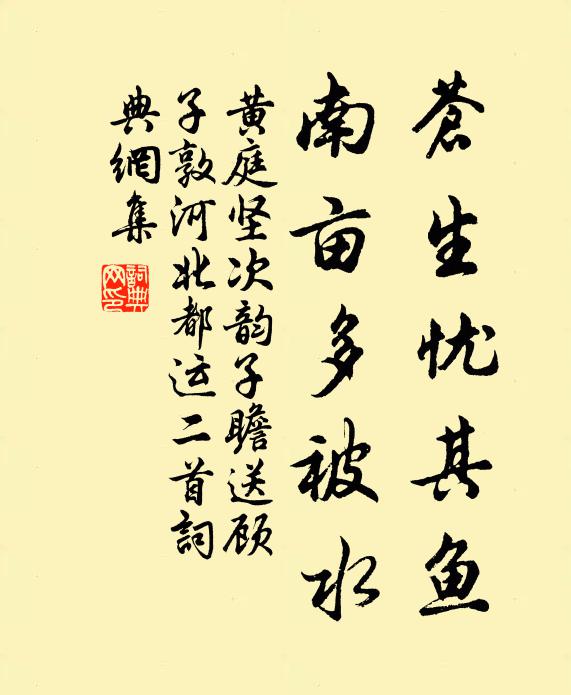 蒼生忧其鱼
南亩多被水
黄庭坚次韵子瞻送顾
子敦河北都运二首詞
典網集
詞典网印